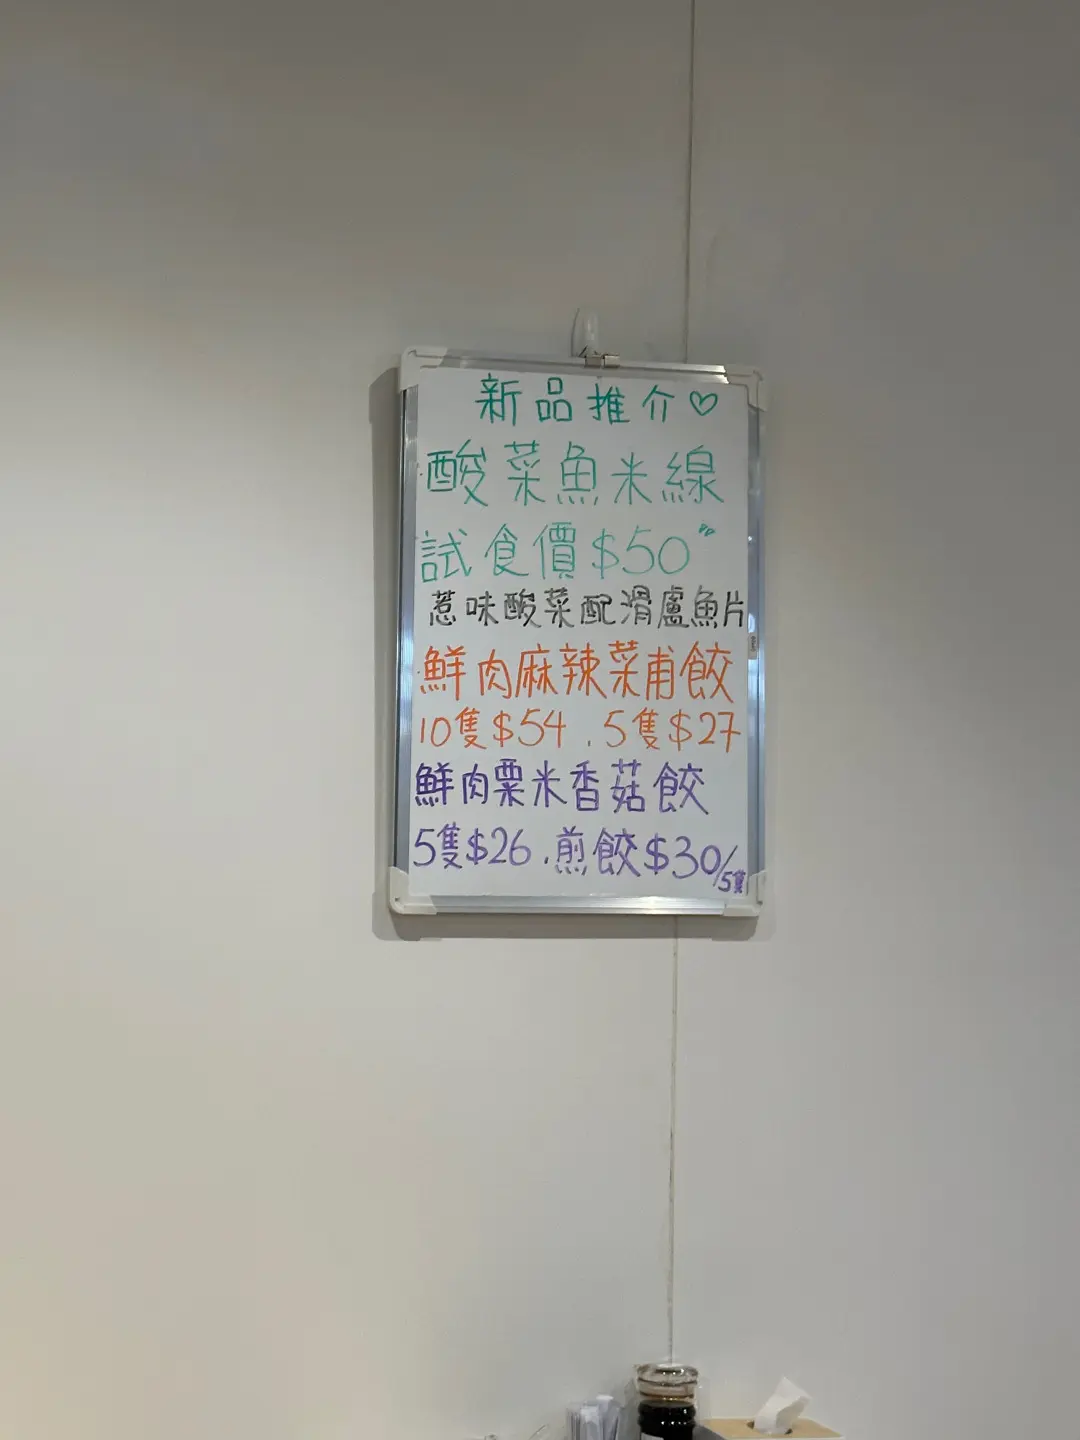 新品推介♡
酸菜魚米線
試食價$50
惹味酸菜配滑盧魚片
鮮肉麻辣菜甫餃
10隻$54.5隻$27
鮮肉粟米香菇餃
5隻$26.煎餃$30/5隻